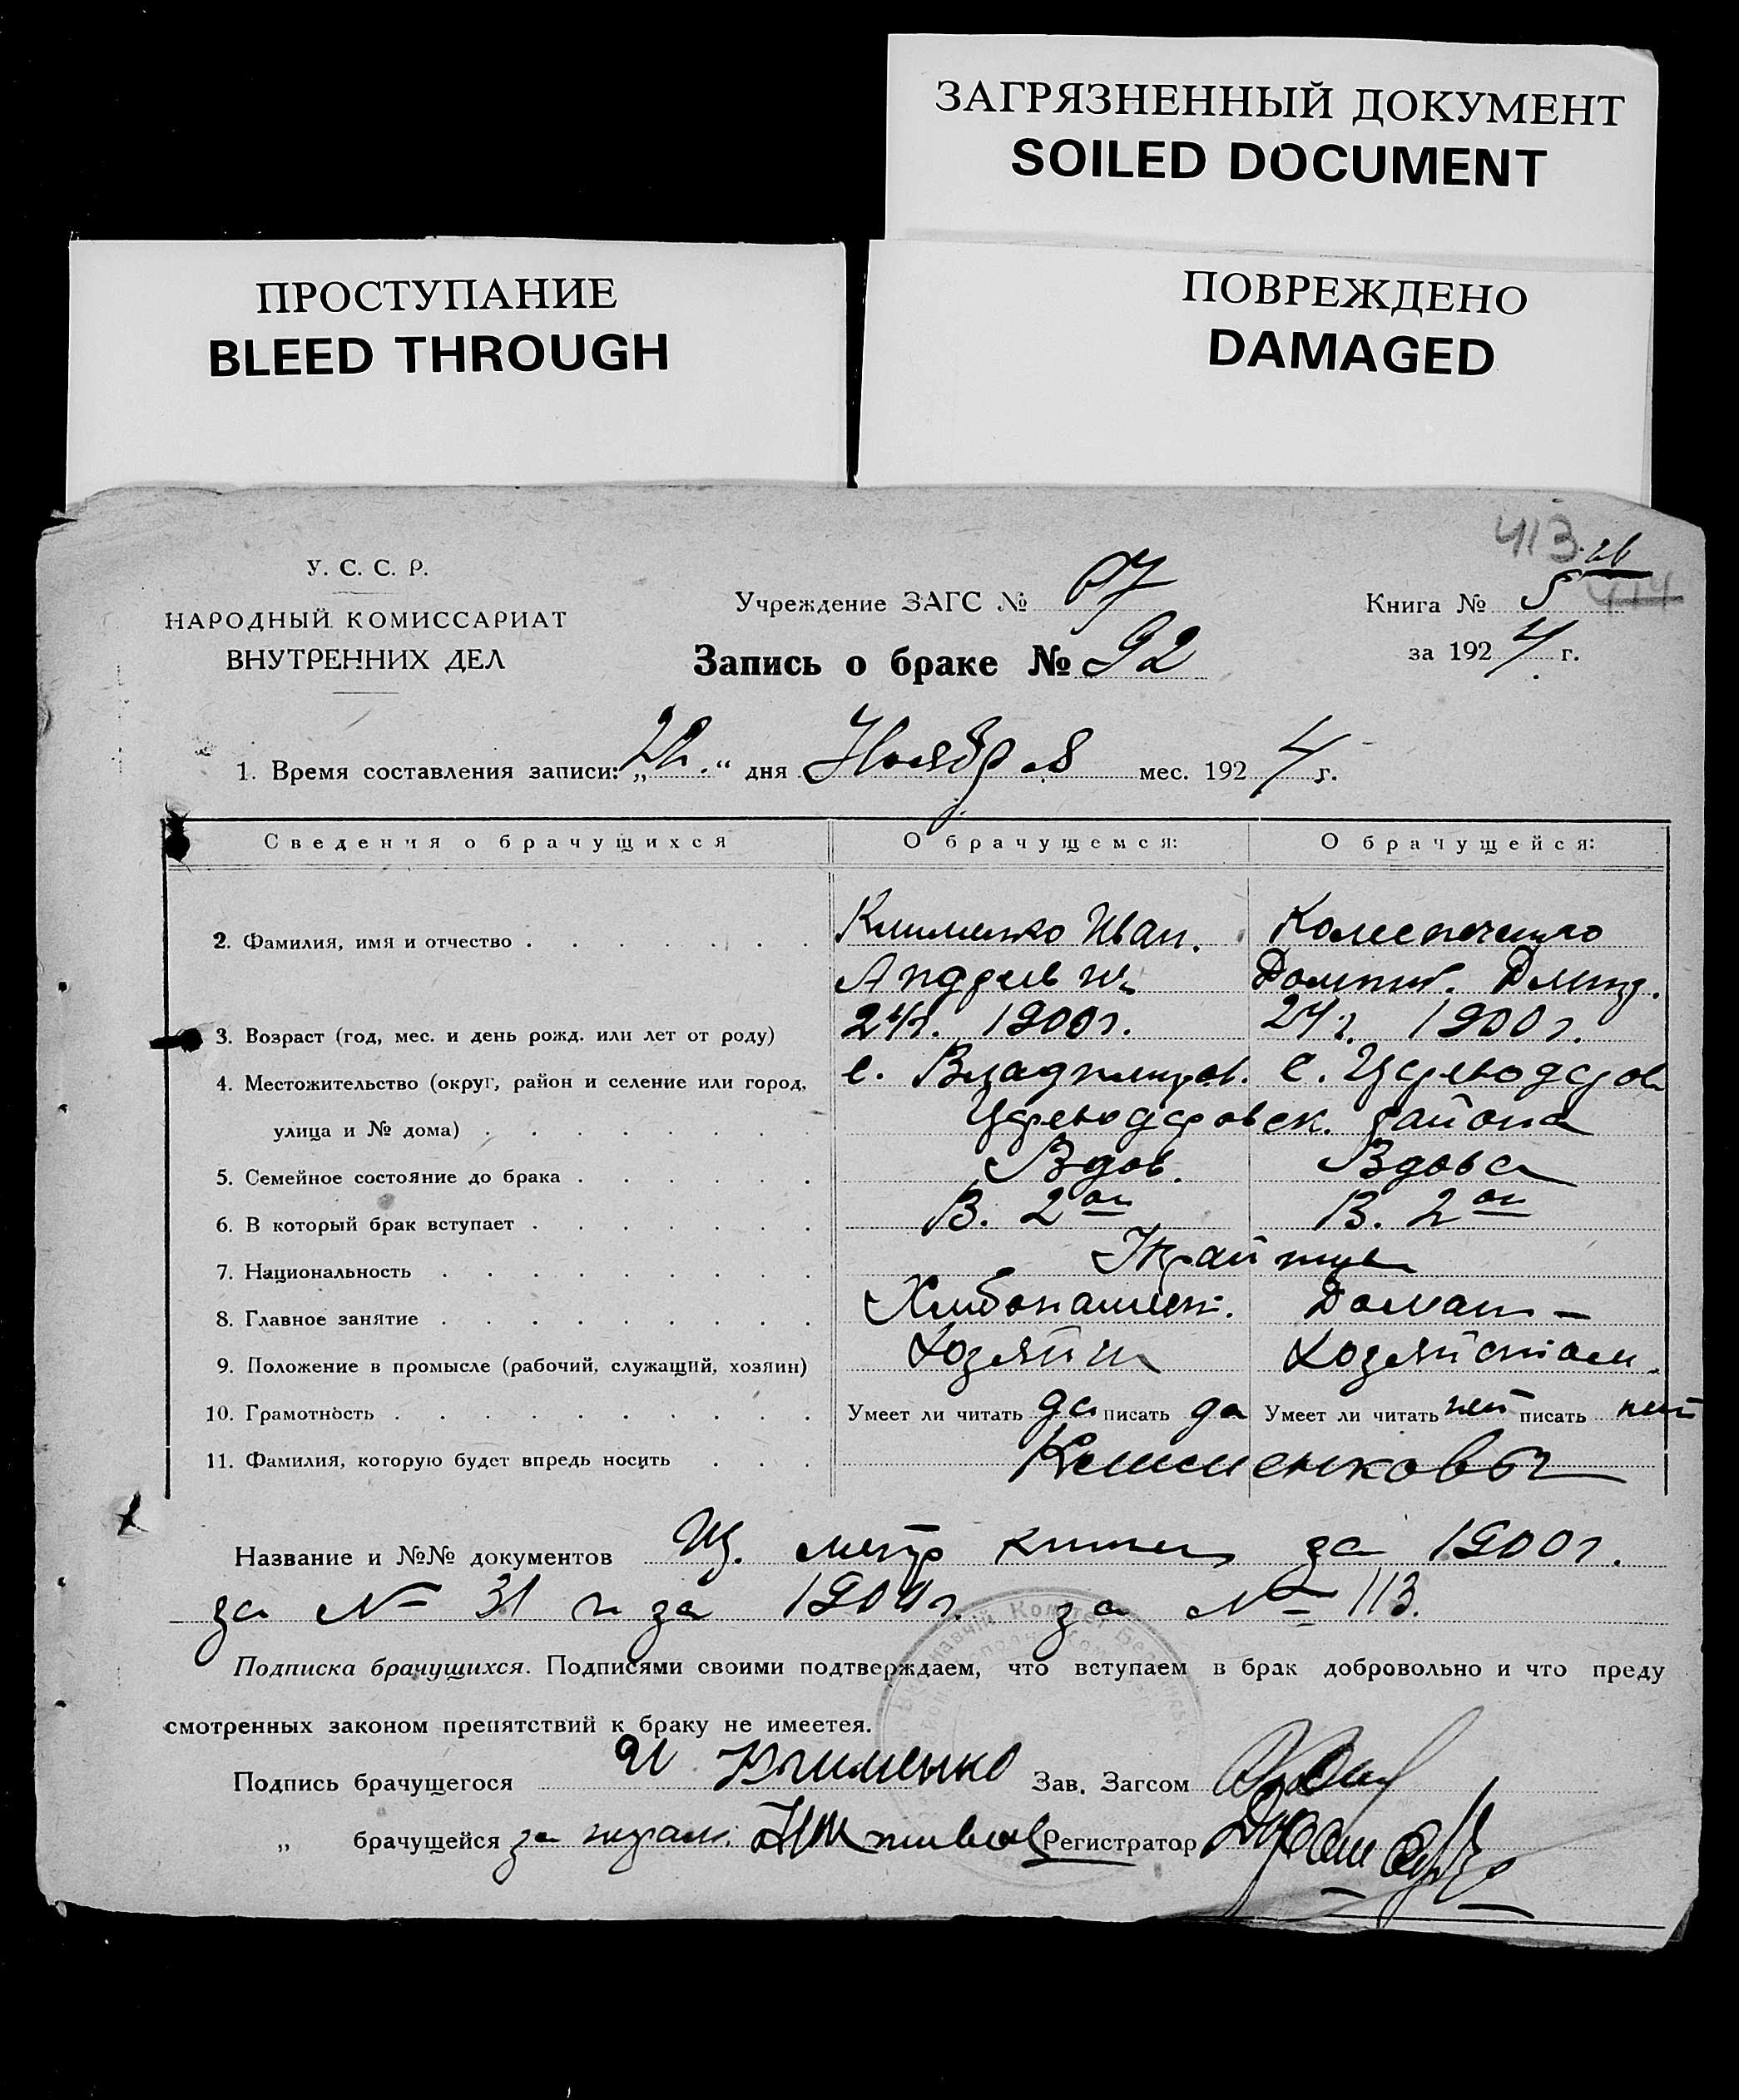 ЗАГРЯЗНЕННЫЙ ДОКУМЕНТ
SOILED DOCUMENT
ПРОСТУПАНИЕ
BLEED THROUGH
ПОВРЕЖДЕНО
DAMAGED
413
У. С. С. Р.
НАРОДНЫЙ КОМИССАРИАТ
ВНУТРЕННИХ ДЕЛ
Учреждение ЗАГС № 67
Книга № 5
Запись о браке № 92
за 1924 г.
1. Время составления записи: „22“ дня Ноября мес. 1924 г.
Сведения о брачущихся О брачущемся: О брачущейся:
2. Фамилия, имя и отчество Клименко Иван. Колесниченко
Андреев Домни. Дмитр.
3. Возраст (год, мес. и день рожд. или лет от роду) 24 г. 1900 г. 24 г. 1900 г.
4. Местожительство (округ, район и селение или город, с. Владимиров. с. Цареводаров
улица и № дома) Цареводаровск. района
5. Семейное состояние до брака Вдов. Вдова
6. В который брак вступает В. 2ой В. 2ой
7. Национальность Украинцы
8. Главное занятие Хлибопашец. Домаш–
9. Положение в промысле (рабочий, служащий, хозяин) Хозяин Хозяйством.
10. Грамотность Умеет ли читать да писать да Умеет ли читать нет писать нет
11. Фамилия, которую будет впредь носить Клименковы
Название и №№ документов Из. метр книги за 1900 г.
за № 31 и за 1900 г. за № 113.
Подписка брачущихся. Подписями своими подтверждаем, что вступаем в брак добровольно и что преду
смотренных законом препятствий к браку не имеетея.
Подпись брачущегося И Клименко Зав. Загсом
„ брачущейся за неграм. Регистратор